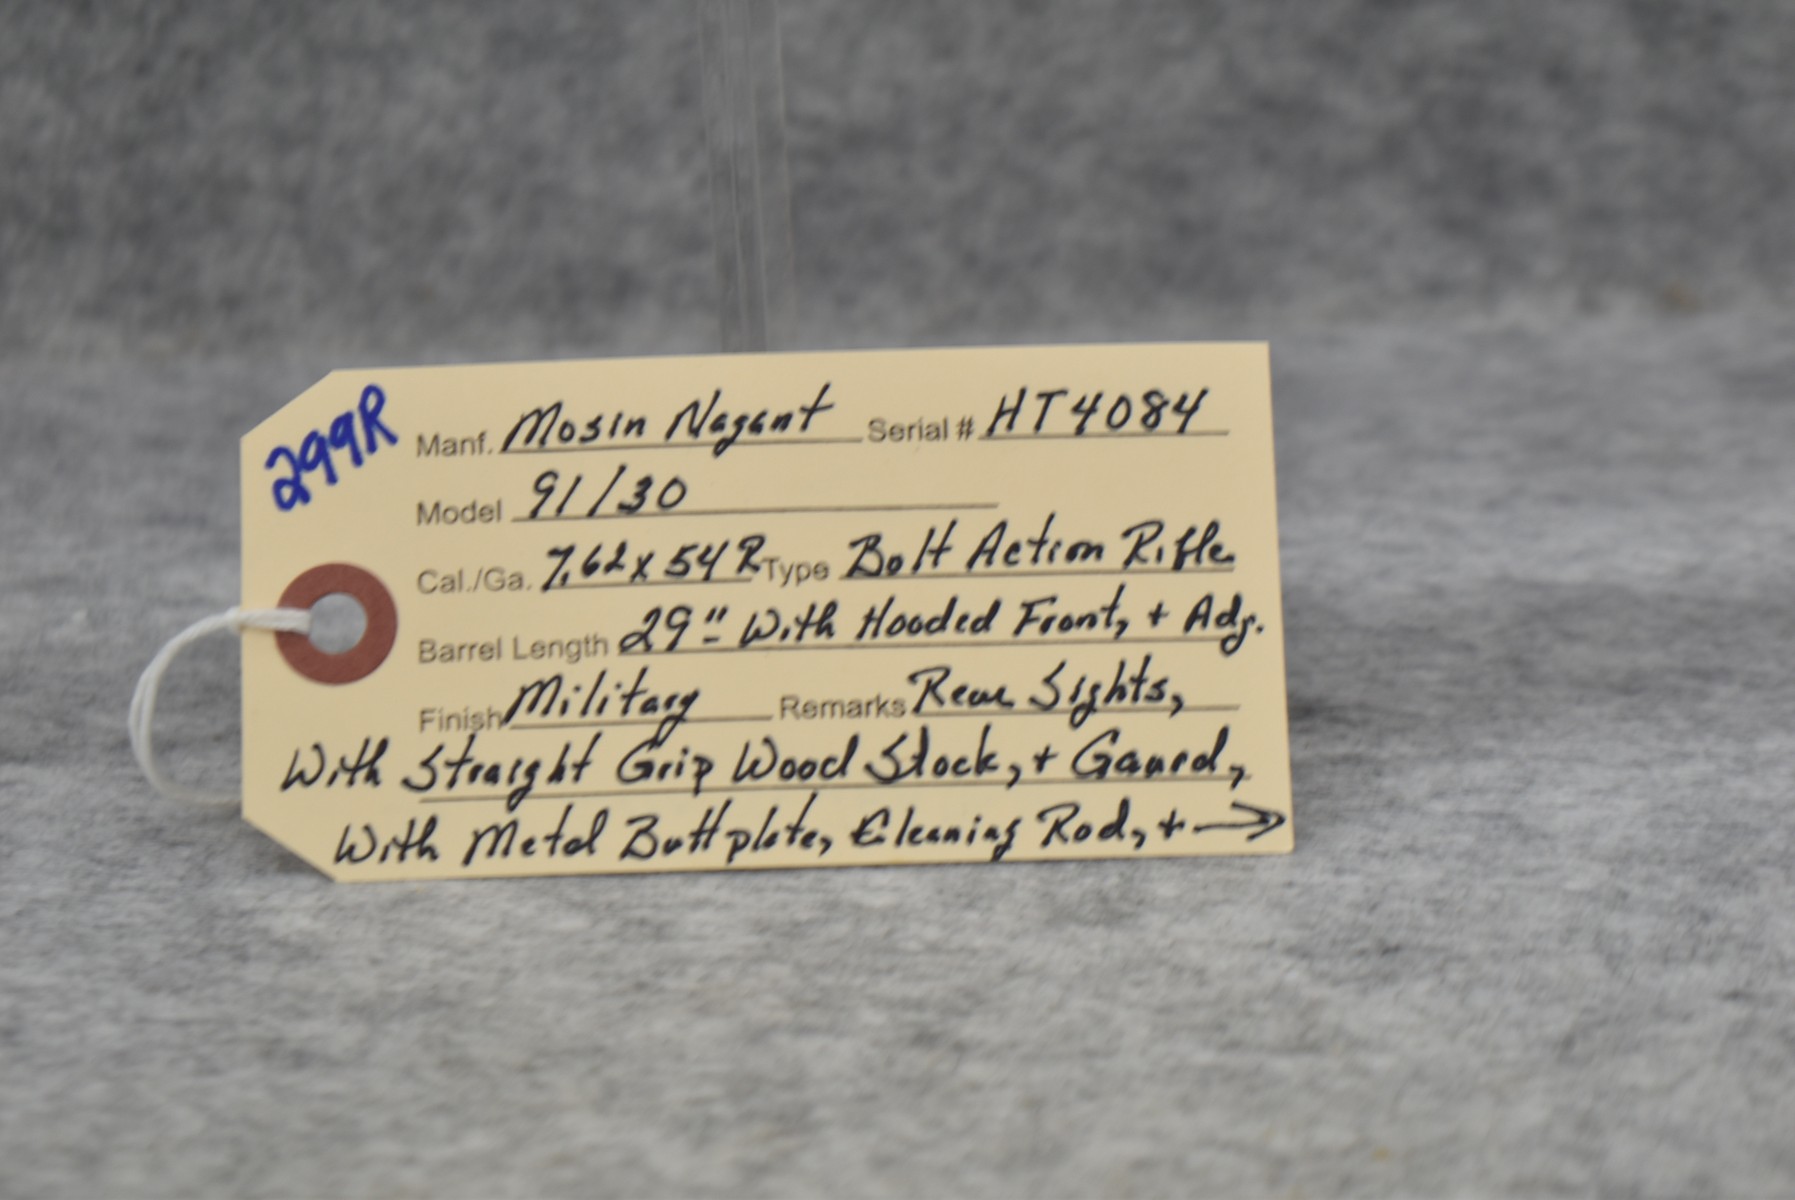 299R
Manf. Mosin Nagant Serial # HT4084
Model 91/30
Cal./Ga. 7.62x54R Type Bolt Action Rifle
Barrel Length 29" With Hooded Front, + Adj.
Finish Military Remarks Rear Sights,
With Straight Grip Wood Stock, + Gaurd,
With Metal Buttplate, Cleaning Rod, + →